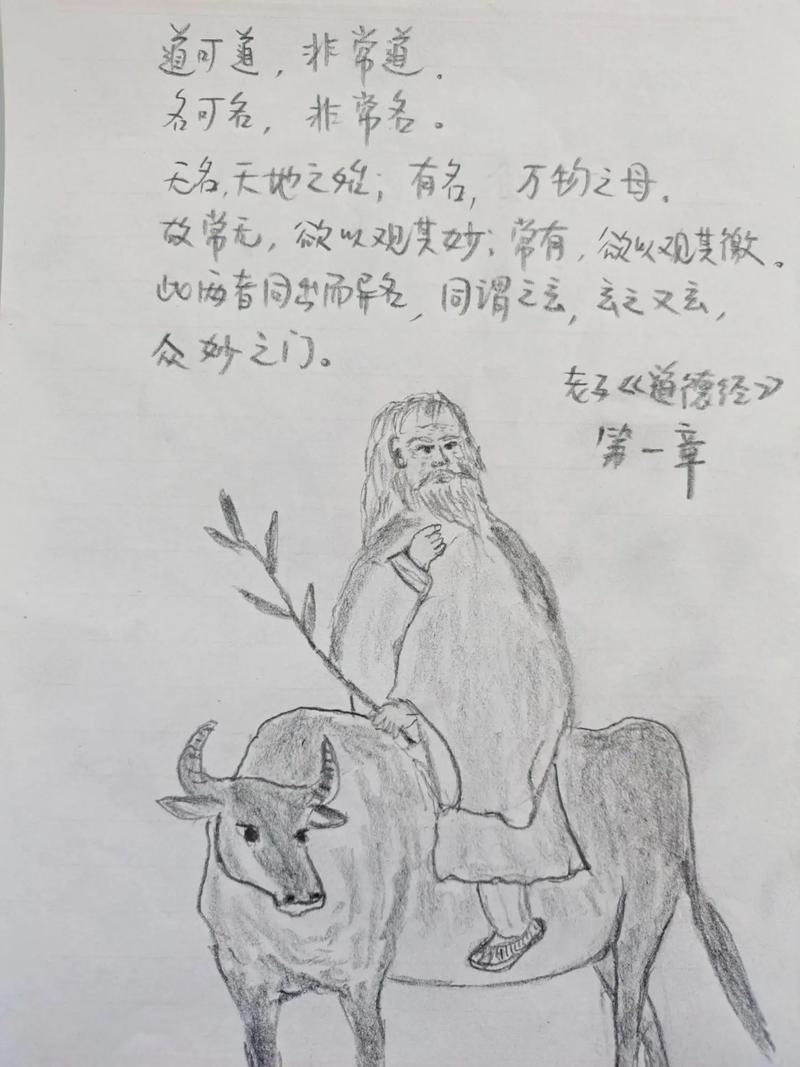 道可道，非常道.
名可名，非常名。
无名,天地之始；有名，万物之母.
故常无，欲以观其妙；常有，欲以观其徼。
此两者同出而异名，同谓之玄，玄之又玄，
众妙之门。
老子《道德经》
第一章